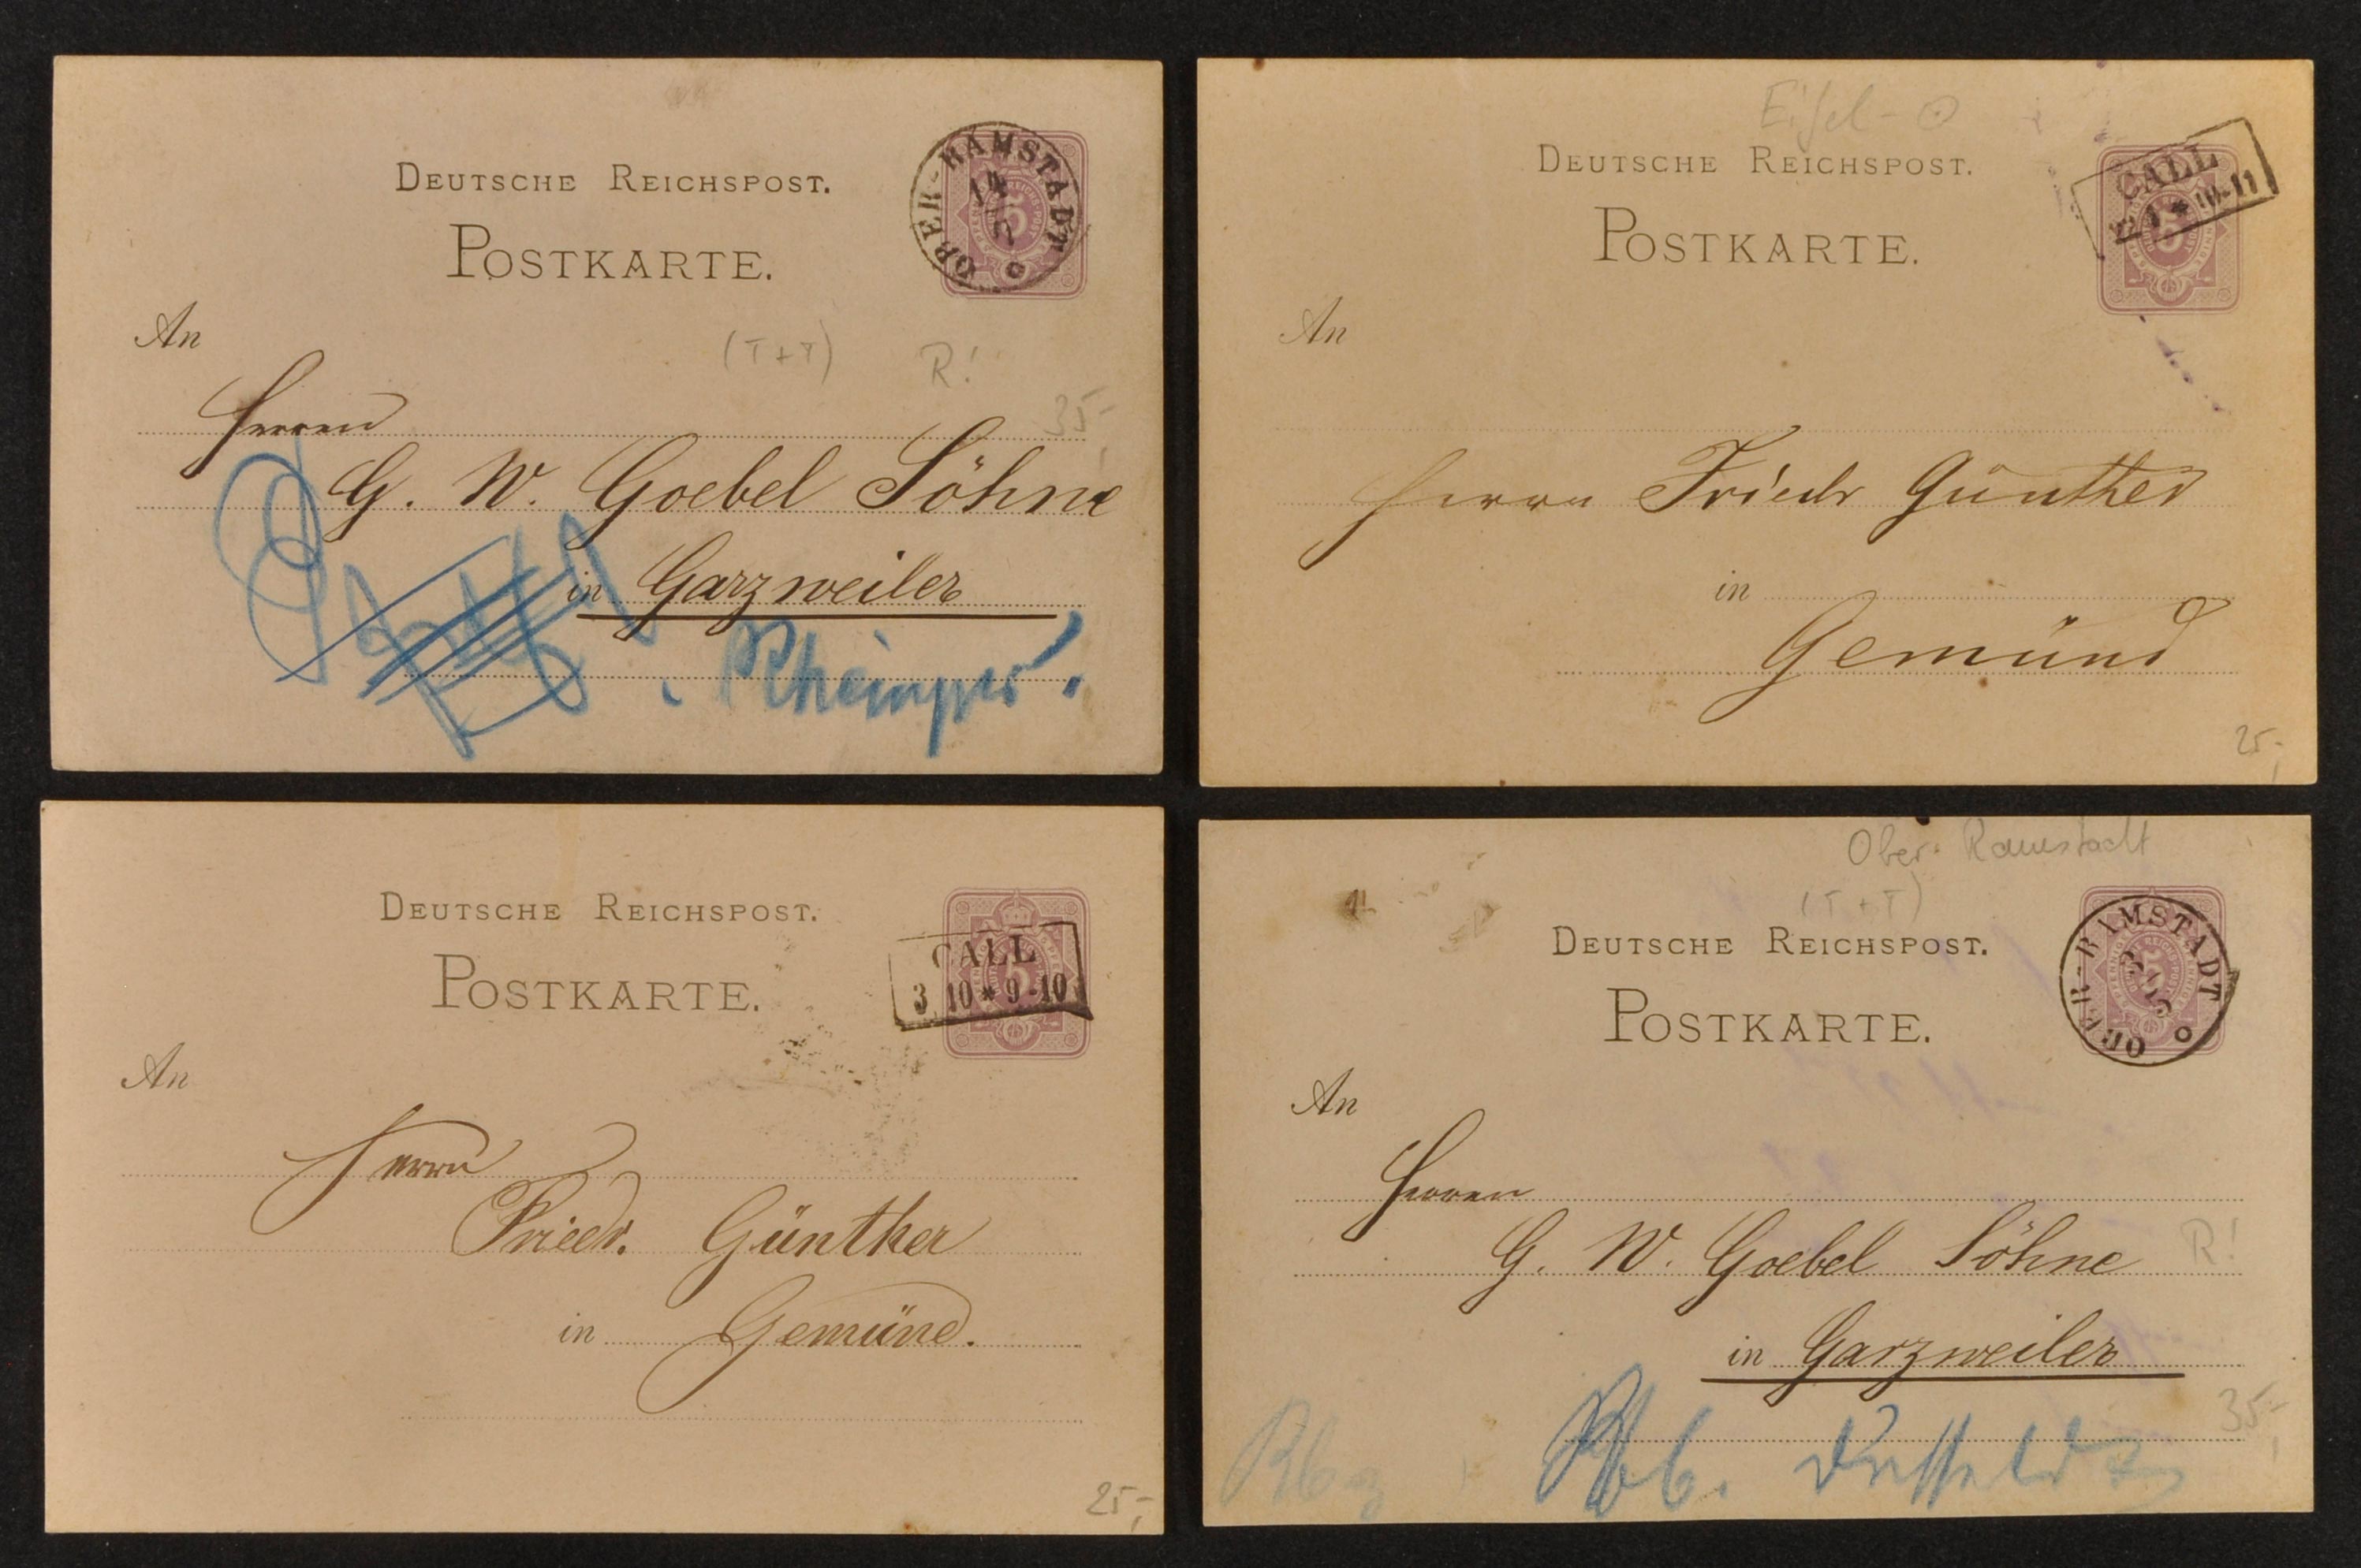 DEUTSCHE REICHSPOST.
POSTKARTE.
OBER-RAMSTADT
14
5
An
(T+T)
R!
35,-
Herren
G. W. Goebel Söhne
in Garzweiler
Rheinprov.
Eifel-
DEUTSCHE REICHSPOST.
POSTKARTE.
CALL
1 * 10-11
5
An
Herrn Friedr Günther
in
Gemünd
25,-
DEUTSCHE REICHSPOST.
POSTKARTE.
CALL
3 10 * 9-10
5
An
Herrn
Friedr. Günther
in Gemünd.
25,-
Ober-Ramstadt
(T+T)
DEUTSCHE REICHSPOST.
POSTKARTE.
OBER-RAMSTADT
3
5
An
Herren
G. W. Goebel Söhne
R!
in Garzweiler
35,-
Rbz
Rbb. Düsseldf